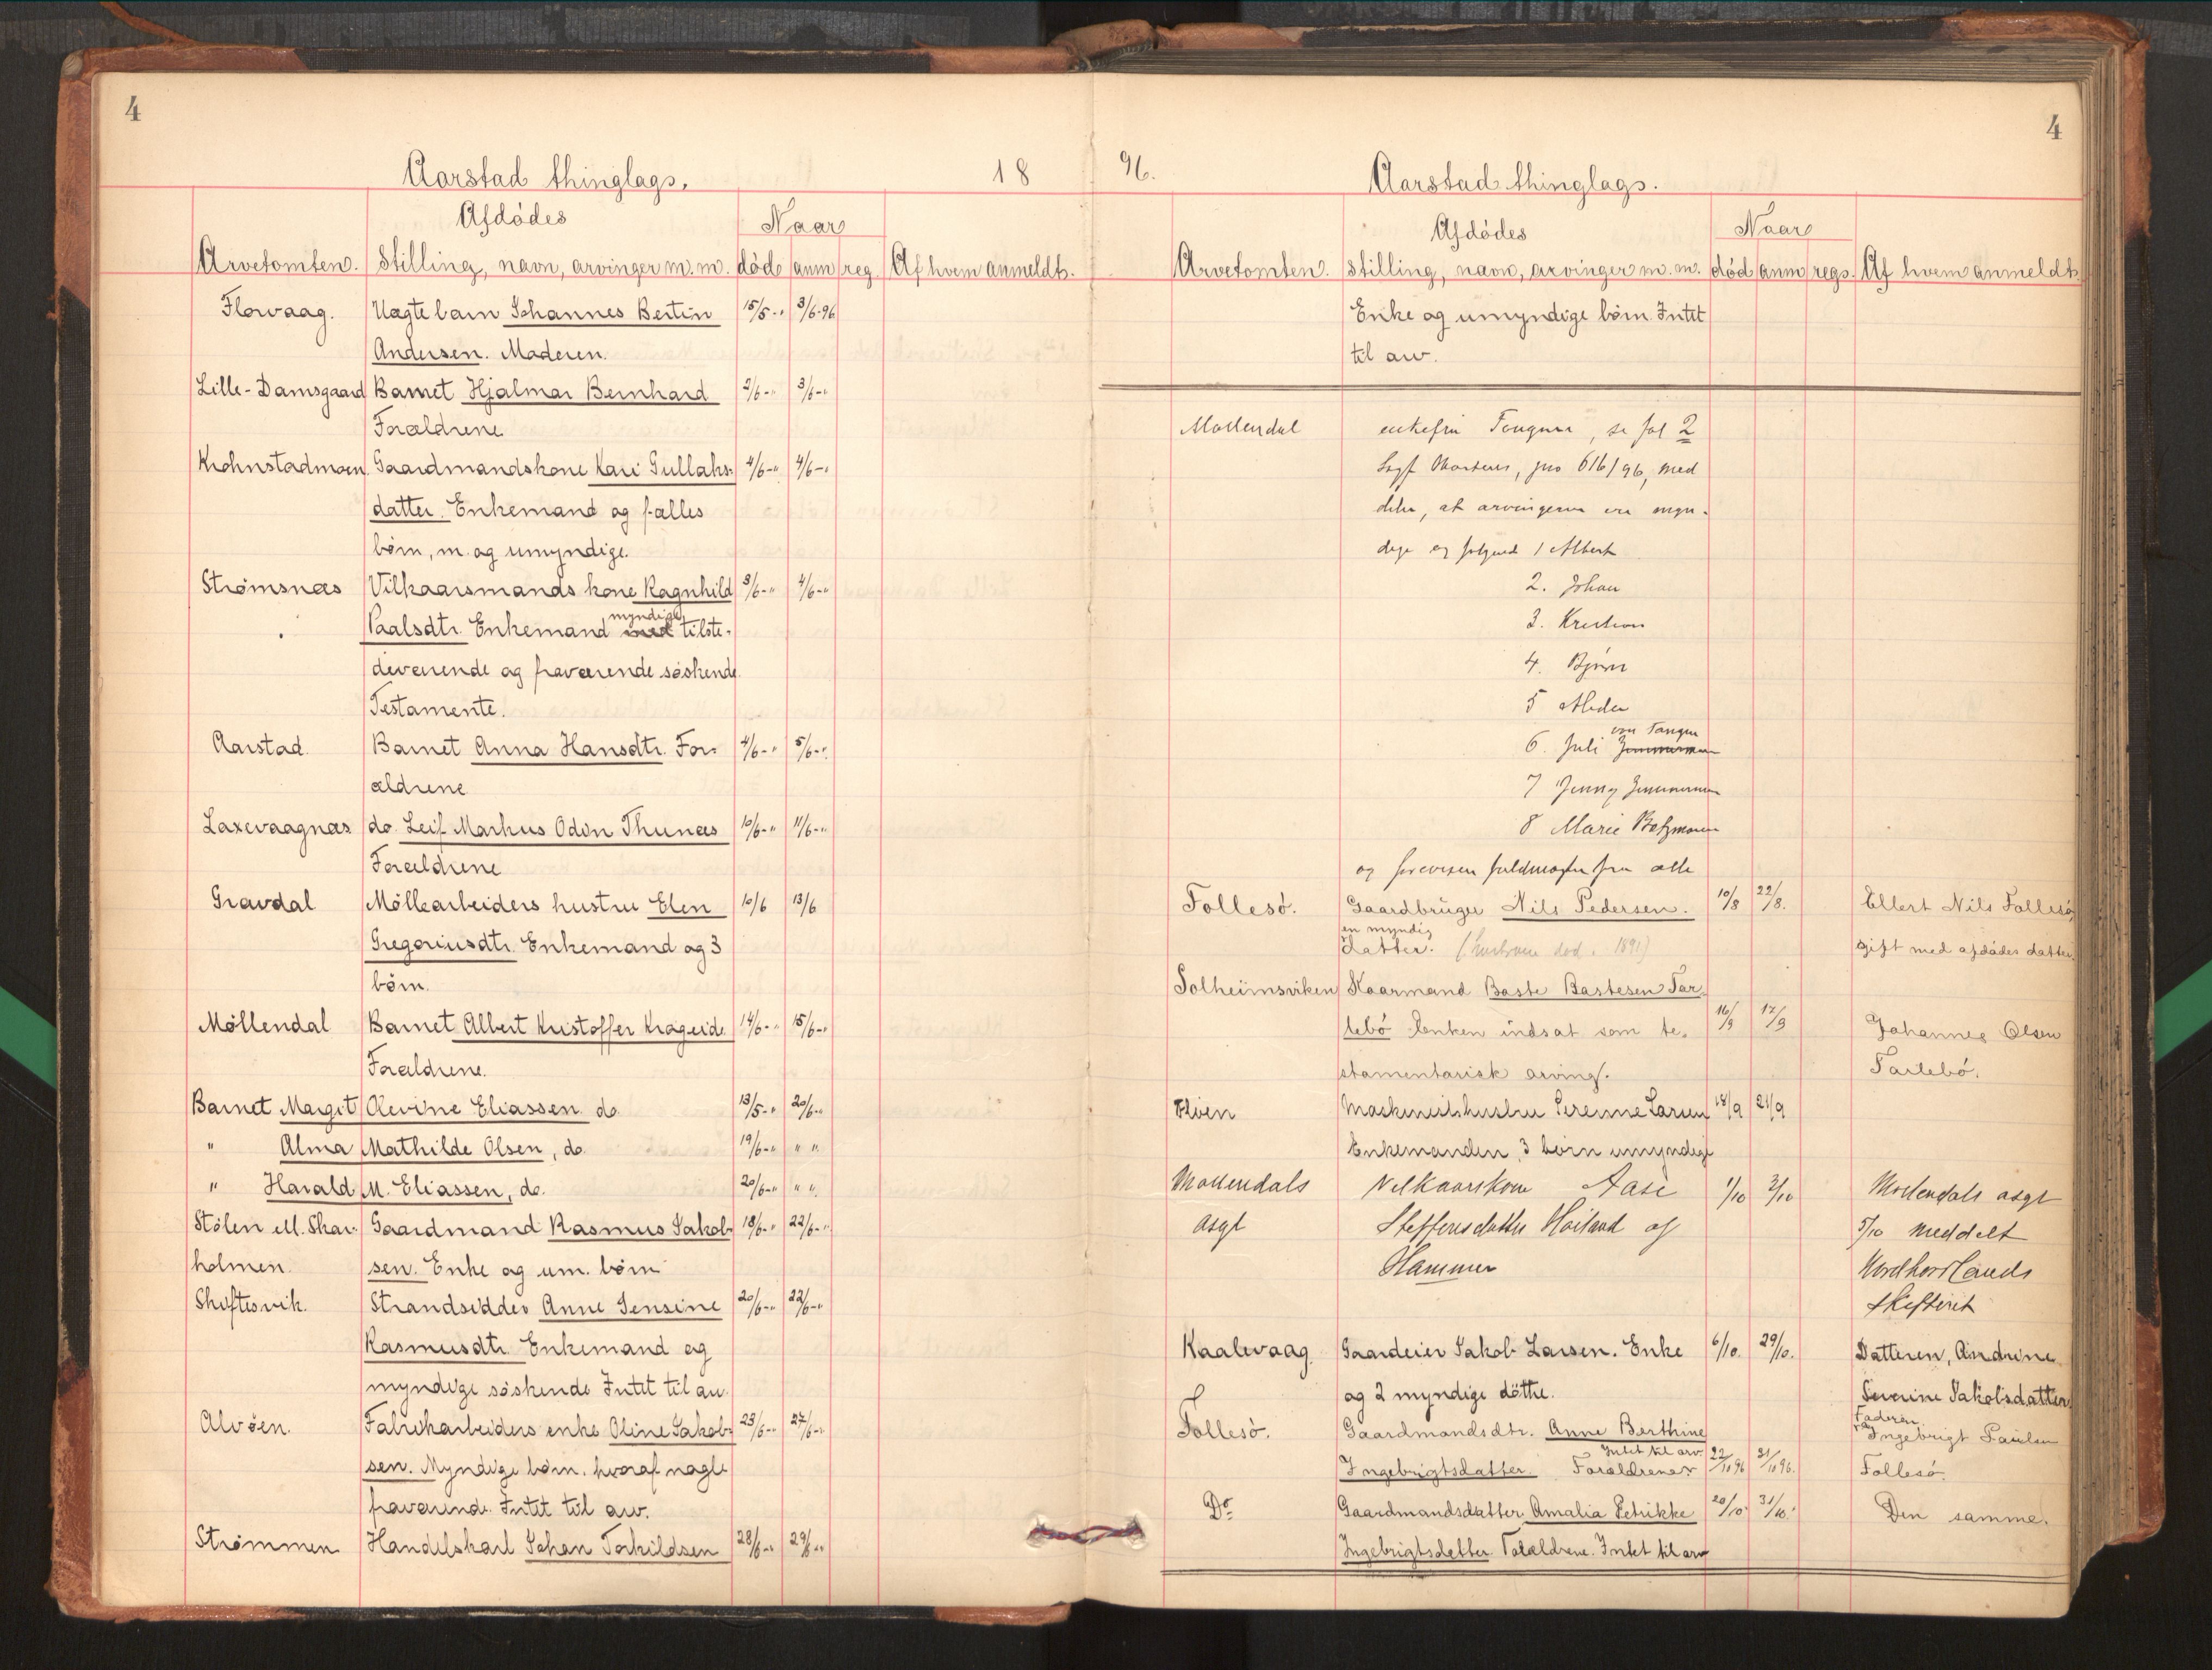 4
Aarstad thinglags. 18
Afdödes Naar
Arvetomten. Stilling, navn, arvinger m. m. död anm reg. Af hvem anmeldt.
Florvaag. Uægte barn Johannes Bertin 15/5-" 3/6-96
Andersen. Moderen.
Lille-Damsgaard Barnet Hjalmar Bernhard 2/6-" 3/6-"
Forældrene
Krohnstadmoen. Gaardmandskone Kari Gullaks- 4/6-" 4/6-"
datter. Enkemand og fælles
børn, m. og umyndige.
Strømsnæs Vilkaarsmands kone Ragnhild 3/6-" 4/6-"
myndige
Paalsdtr. Enkemand med tilste-
deværende og fraværende søskende
Testamente.
Aarstad. Barnet Anna Hansdtr. For- 4/6-" 5/6-"
ældrene
Laxevaagnæs do. Leif Markus Odin Thunæs 10/6-" 11/6-"
Forældrene
Gravdal Möllearbeiders hustru Elen 10/6 13/6
Gregoriusdtr. Enkemand og 3
børn.
Møllendal Barnet Albert Kristoffer Krageide. 14/6-" 15/6-"
Forældrene.
Barnet Margit Olevine Eliassen do 13/5-" 20/6-"
" Alma Mathilde Olsen, do. 19/6-" " "
" Harald M. Eliassen, do. 20/6-" " "
Stölen M. Skar- Gaardmand Rasmus Jakob- 18/6-" 22/6-"
holmen. sen. Enke og um. børn
Skiftesvik. Strandsidder Anne Jensine 20/6-" 22/6-"
Rasmusdtr. Enkemand og
myndige søskende Intet til arv.
Alvøen. Fabrikarbeiders enke Oline Jakob- 23/6-" 27/6-"
sen. Myndige børn, hvoraf nogle
fraværende. Intet til arv.
Strømmen Handelskarl Johan Torkildsen 28/6-" 29/6-"
4
96. Aarstad thinglags.
Afdödes Naar
Arvetomten. Stilling, navn, arvinger m. m. död anm regs. Af hvem anmeldt
Enke og umyndige børn. Intet
til arv.
Møllendal enkefru , se fol 2
, jno 616/96, med
deler, at arvingerne ere myn-
dige og følgende 1 Albert
2. Johan
3. Kristian
4. Bjørn
5
6. Juli
7 Jenny
8 Marie
og foreviser fuldmagter fra alle
Follesö. Gaardbruger Nils Pedersen. 10/8 22/8. Ellert Nils Follesö,
en myndig
Datter. (hustruen död. 1891) gift med afdödes datter.
Solheimsviken Kaarmand Baste Bastesen Tar-
lebö Enken indsat som te- 16/9 17/9 Johannes Olsen
stamentarisk arving. Tarlebö.
Maskinisthustru Serenne Larsen 18/9 21/9
Enkemanden, 3 børn umyndige
Møllendals Vilkaarskone Aase 1/10 2/10 Møllendals asyl
asyl Steffensdatter Høiland af 5/10 meddelt
Hammer Nordhorlands
skifteret
Kaalevaag. Gaardeier Jakob Larsen. Enke 6/10. 29/10. Datteren, Andrine
og 2 myndige döttre. Severine Jakobsdatter.
Follesö. Gaardmandsdtr. Anne Berthine Faderen Ingebrigt Paulsen
Intet til arv
Ingebrigtsdatter. Forældrene 22/10 96 31/10 96. Follesö.
Do Gaardmandsdatter Amalia Petrikke 20/10. 31/10. Den samme.
Ingebrigtsdatter. Forældrene. Intet til arv